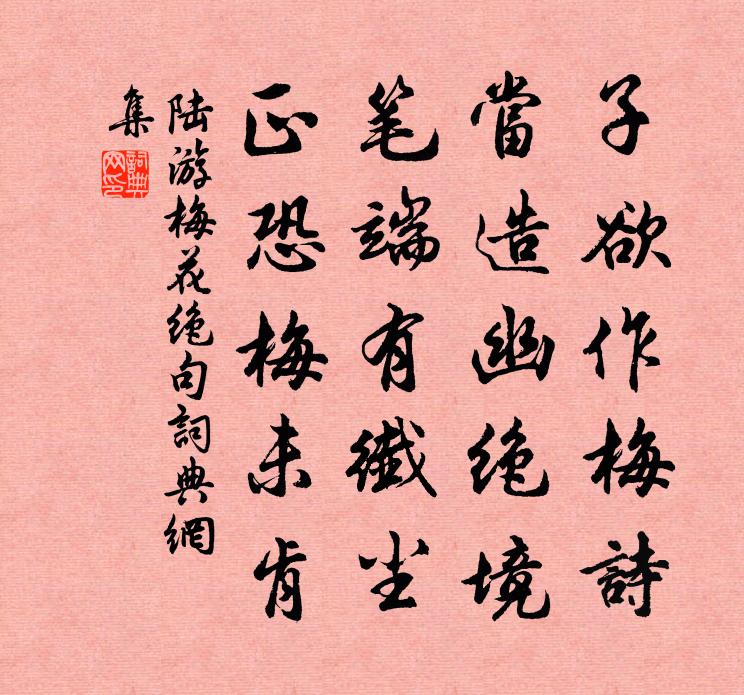 子欲作梅詩
當造幽绝境
笔端有纖尘
正恐梅未肯
陆游梅花绝句詞典網
集
詞典网印